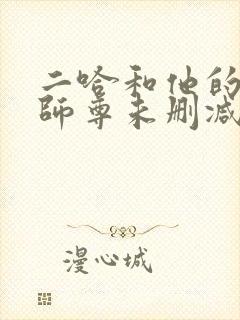 二哈和他的
師尊未刪减
漫心城